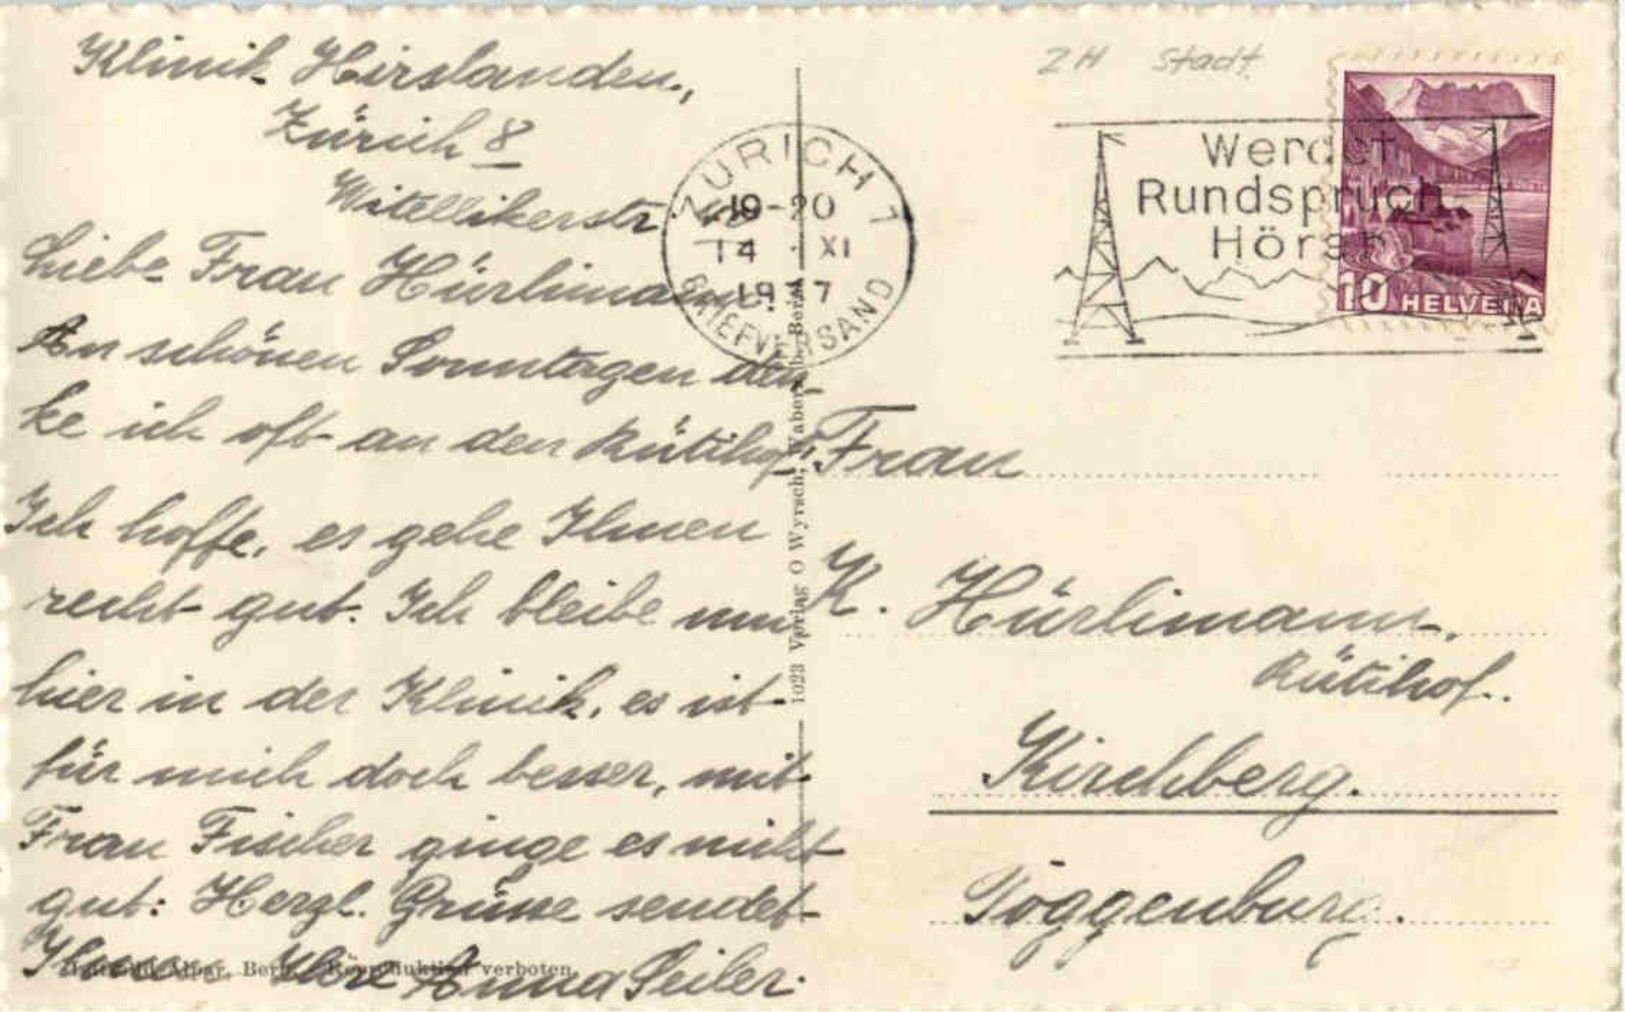 Klinik Hirslanden,
Zürich 8
Witellikerstr.
Liebe Frau Hürlimann.
An schönen Sonntagen den-
ke ich oft an den Rütihof.
Ich hoffe, es gehe Ihnen
recht gut. Ich bleibe nun
hier in der Klinik, es ist
für mich doch besser, mit
Frau Fischer ginge es nicht
gut: Herzl. Grüsse sendet
Ihnen Ihre Anna Seiler.
Alpar, Bern. Reproduktion verboten
1023 Verlag O Wyrsch, Wabern b. Bern
ZH Stadt
ZÜRICH 1
19-20
14 XI
BRIEFVERSAND
Werdet
Rundspruch
Hörer
10 HELVETIA
Frau
K. Hürlimann,
Rütihof.
Kirchberg.
Toggenburg.